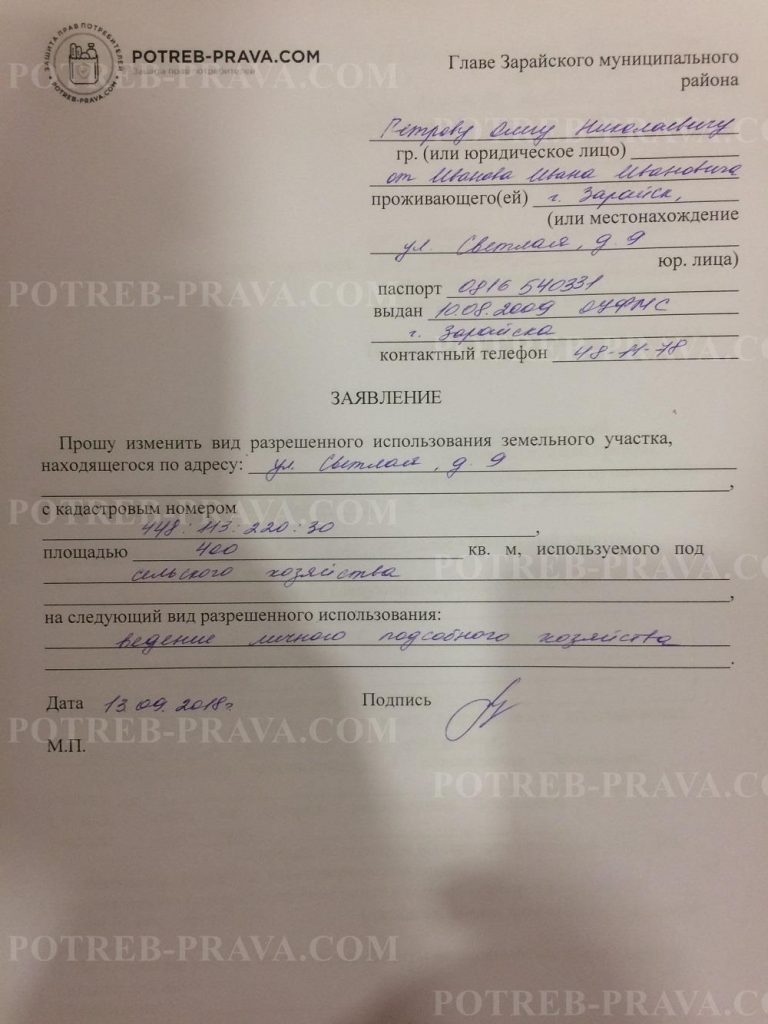 ЗАЩИТА ПРАВ ПОТРЕБИТЕЛЕЙ
POTREB-PRAVA.COM
POTREB-PRAVA.COM
Защита прав потребителей
Главе Зарайского муниципального
района
Петрову Олегу Николаевичу
гр. (или юридическое лицо)
от Иванова Ивана Ивановича
проживающего(ей) г. Зарайск,
(или местонахождение
ул. Светлая, д. 9
юр. лица)
паспорт 0816 540331
выдан 10.08.2009 ОУФМС
г. Зарайска
контактный телефон 48-11-78
ЗАЯВЛЕНИЕ
Прошу изменить вид разрешенного использования земельного участка,
находящегося по адресу: ул. Светлая, д. 9
,
с кадастровым номером
448:113:220:30,
площадью 400 кв. м, используемого под
сельского хозяйства
,
на следующий вид разрешенного использования:
ведение личного подсобного хозяйства
.
Дата 13.09.2018г. Подпись
М.П.
POTREB-PRAVA.COM
POTREB-PRAVA.COM
POTREB-PRAVA.COM
POTREB-PRAVA.COM
POTREB-PRAVA.COM